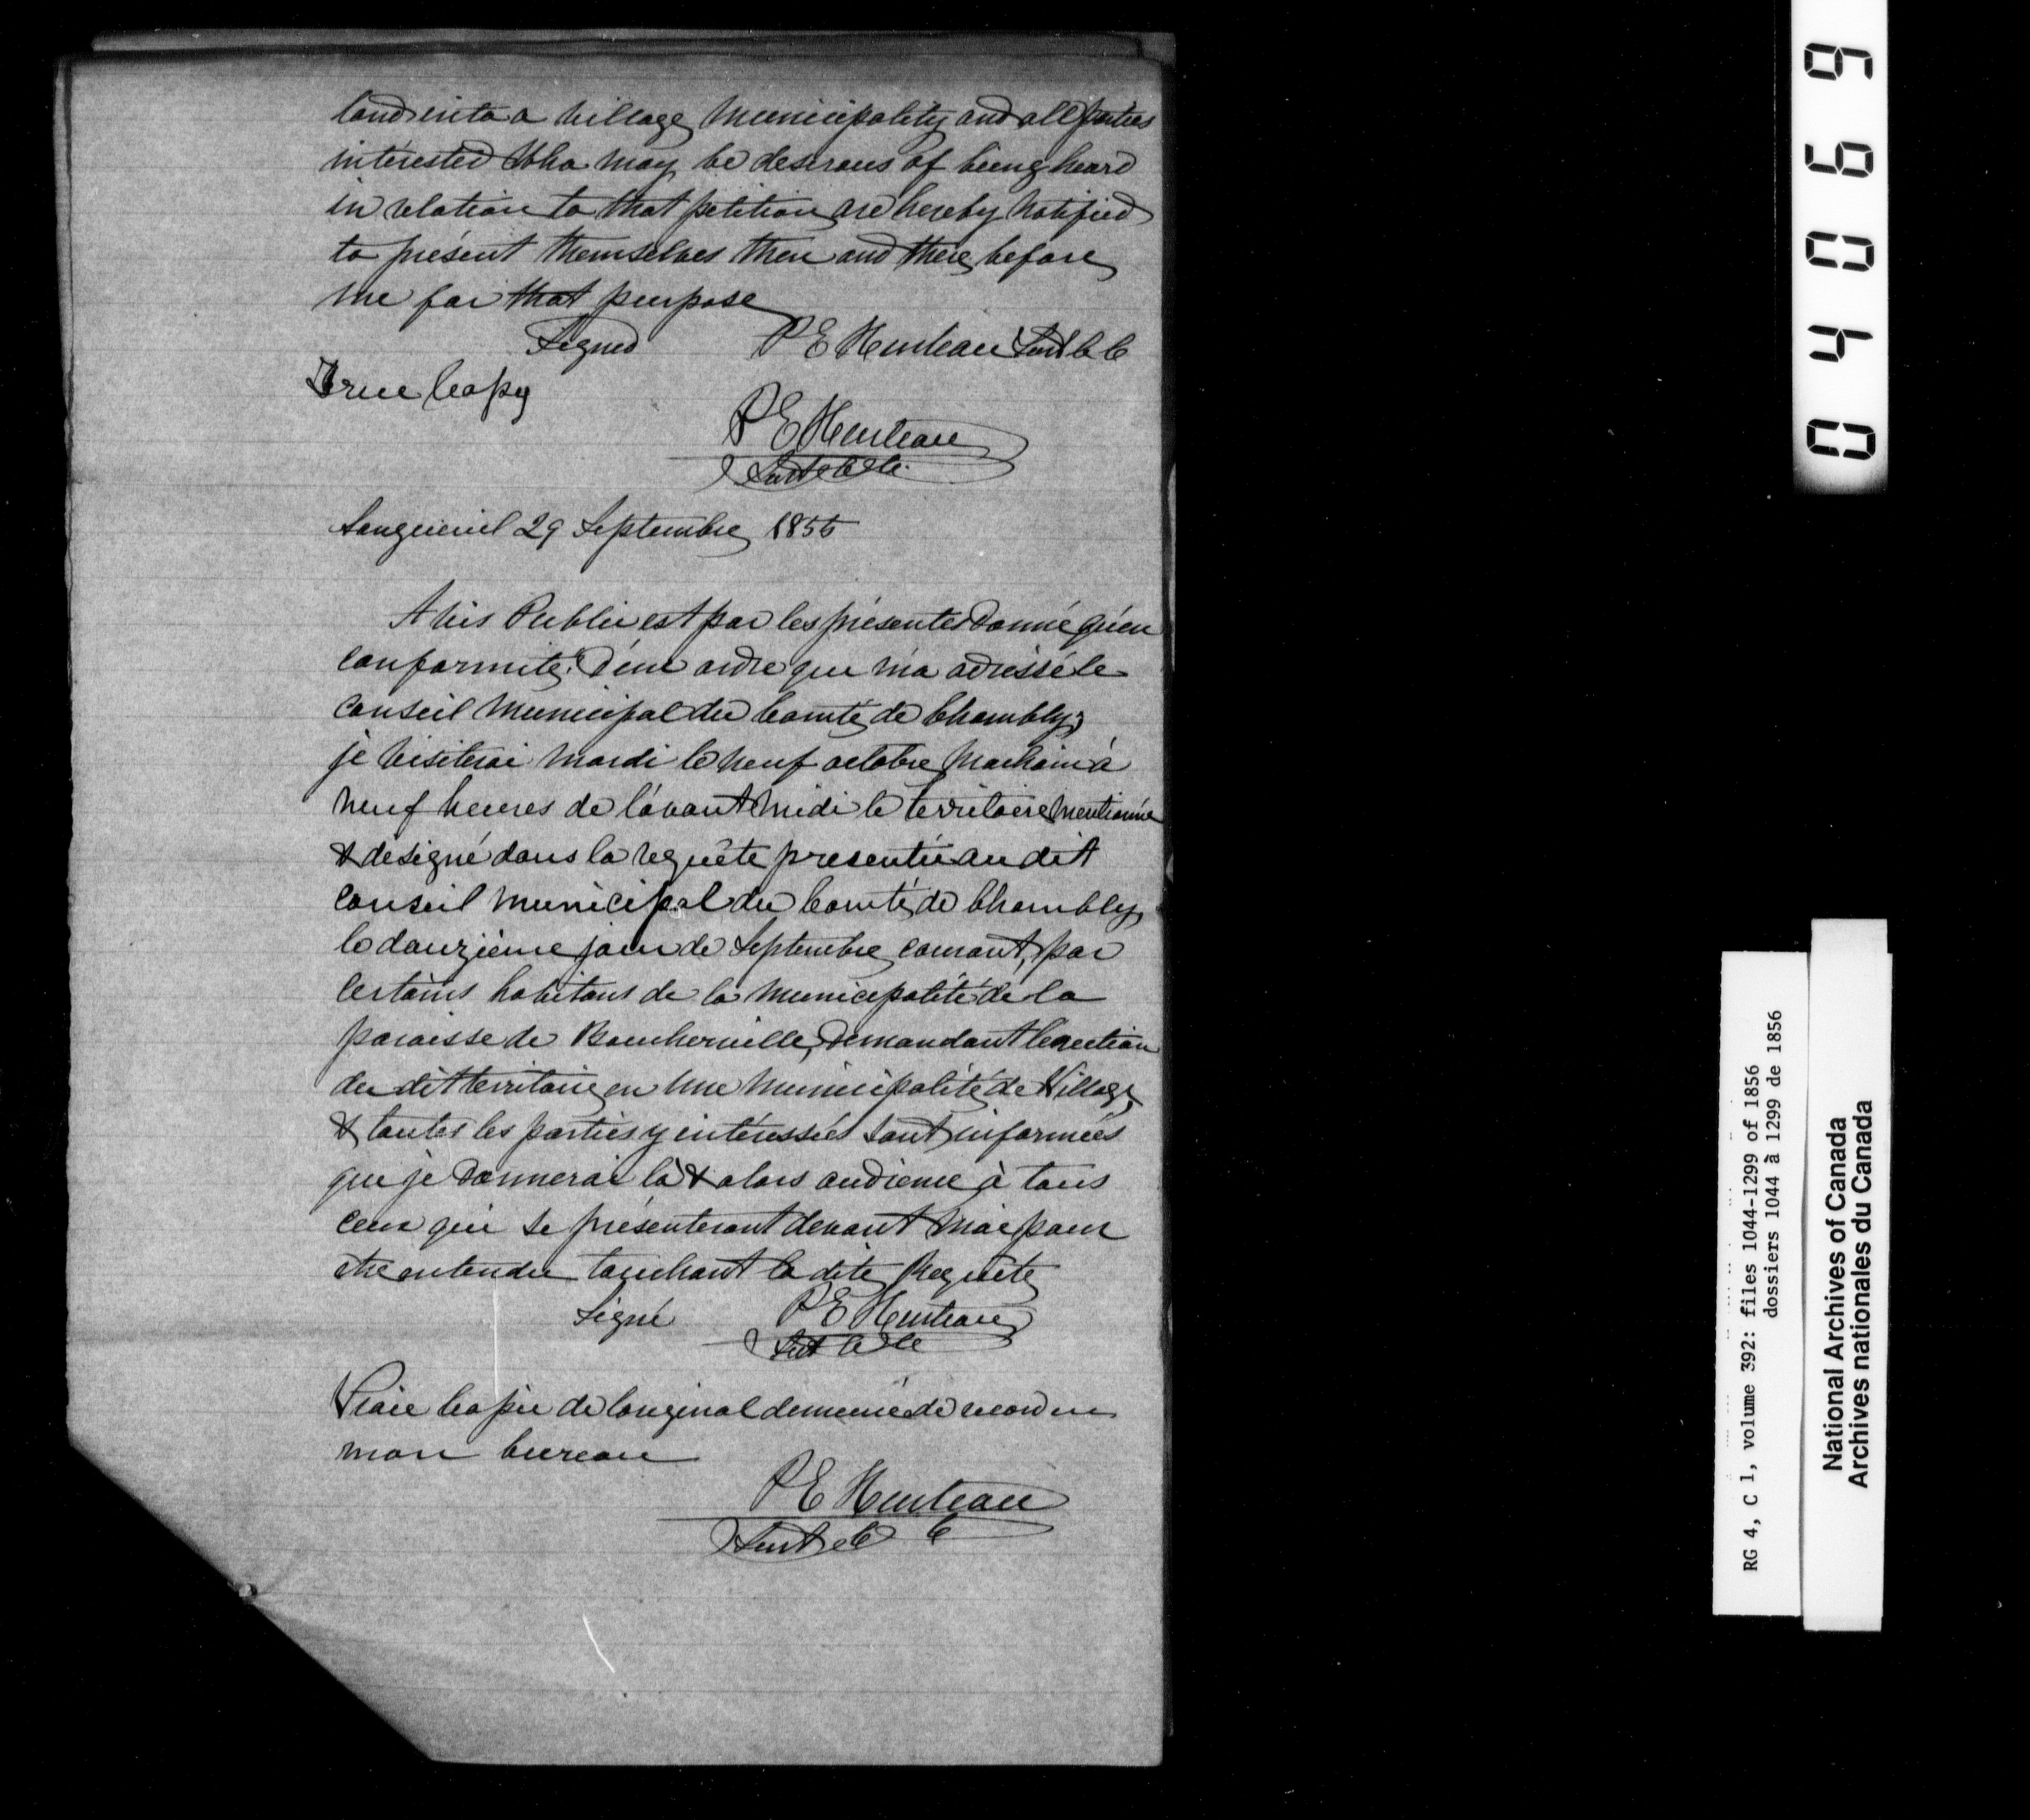 land into a village Municipality and all parties
interested who may be desirous of being heard
in relation to that petition are hereby notified
to présent themselves then and there before
me for that purpose
Signed P E Hurteau Surt C C
True Copy
P E Hurteau
Surt C C
Longueuil 29 Septembre 1855
Avis Public est par les présentes donné qu'en
conformité d'un ordre que m'a adressé le
Conseil Municipal du Comté de Chambly,
je visiterai mardi le neuf octobre prochain à
neuf heures de l'avant midi le territoire mentionné
& désigné dans la requête presentée au dit
Conseil Municipal du Comté de Chambly
le douzième jour de Septembre courant, par
certains habitans de la Municipalité de la
paroisse de Boucherville, demandant l'erection
du dit territoire en une Municipalité de Village
& toutes les parties y intéressées sont informées
que je donnerai là & alors audience à tous
ceux qui se présenteront devant moi pour
etre entendu touchant la dite Requête
Signé P E Hurteau
Surt C C
Vraie Copie de l'original demeuré de record en
mon bureau
P E Hurteau
Surt C C
04069
RG 4, C 1, volume 392: files 1044-1299 of 1856
dossiers 1044 à 1299 de 1856
National Archives of Canada
Archives nationales du Canada